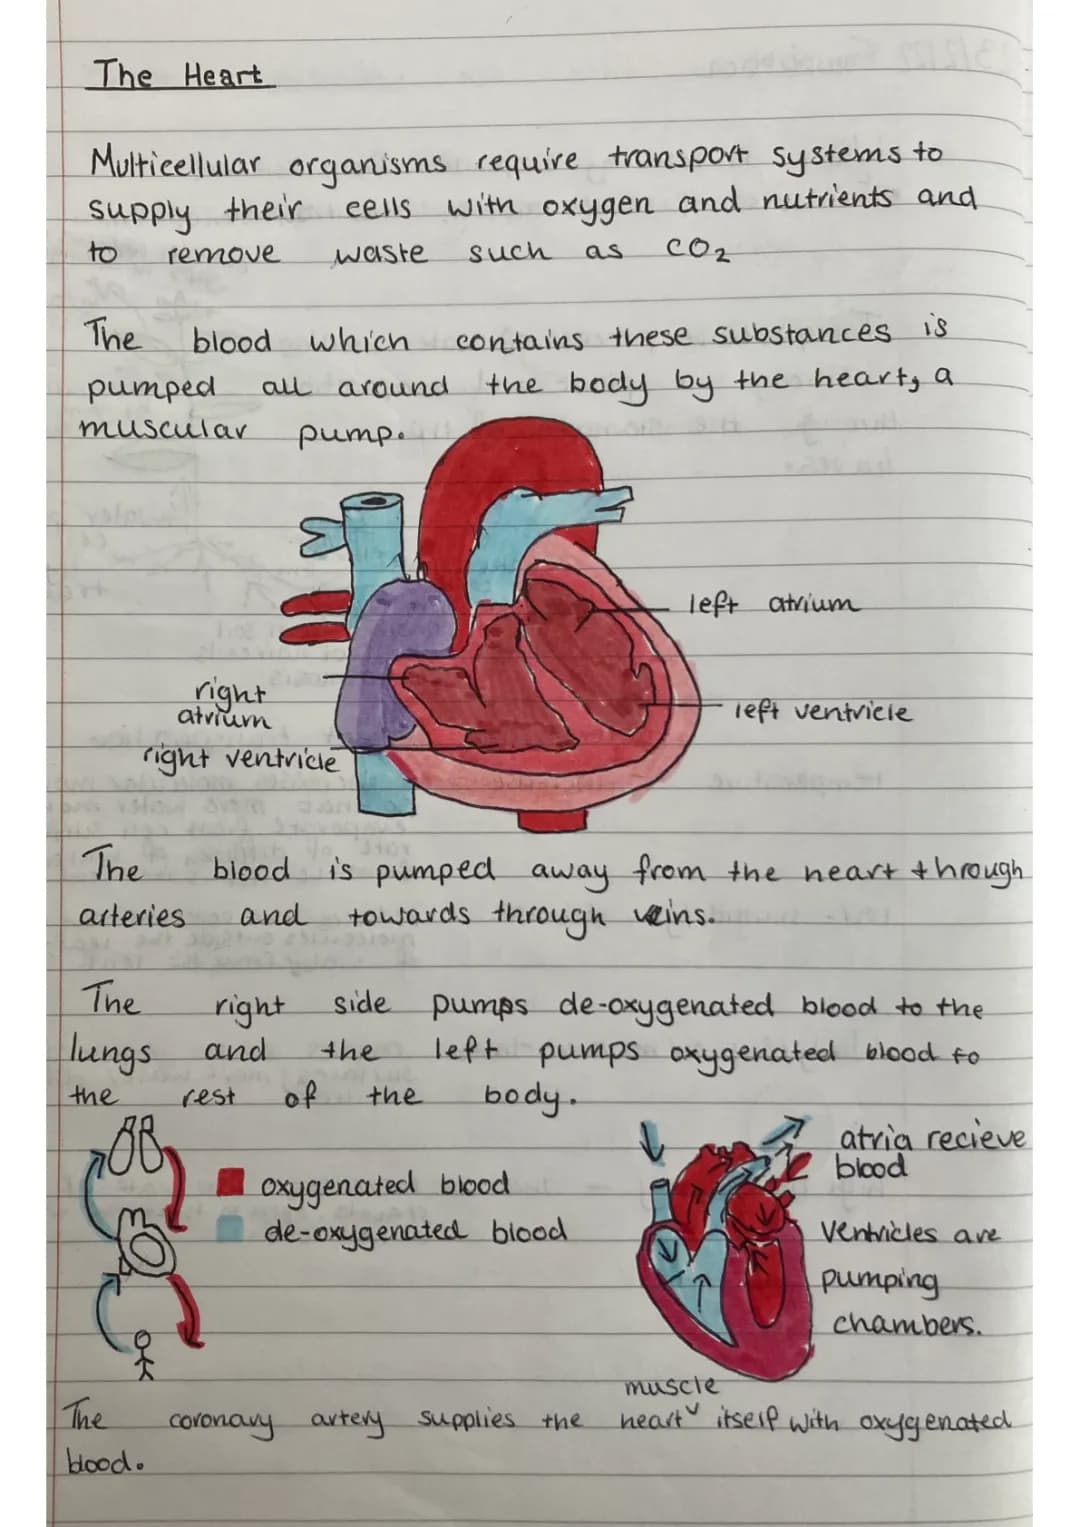 The Heart
Multicellular organisms require transport systems to
supply their cells with oxygen and nutrients and
to remove waste such as CO₂
The blood which contains these substances is
pumped all around the body by the heart, a
muscular pump.
left atrium
right
atrium
left ventricle
right ventricle
The blood is pumped away from the heart through
arteries and towards through veins.
The right side pumps de-oxygenated blood to the
lungs and the left pumps oxygenated blood to
the rest of the body.
oxygenated blood
de-oxygenated blood
atria recieve
blood
Ventricles are
pumping
chambers.
muscle
The coronary artery supplies the heart ˅ itself with oxygenated
blood.